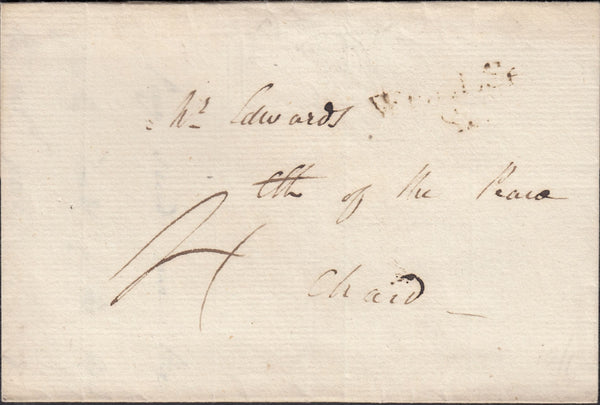 Mr Edwards
Clk of the Peace
Chard
4